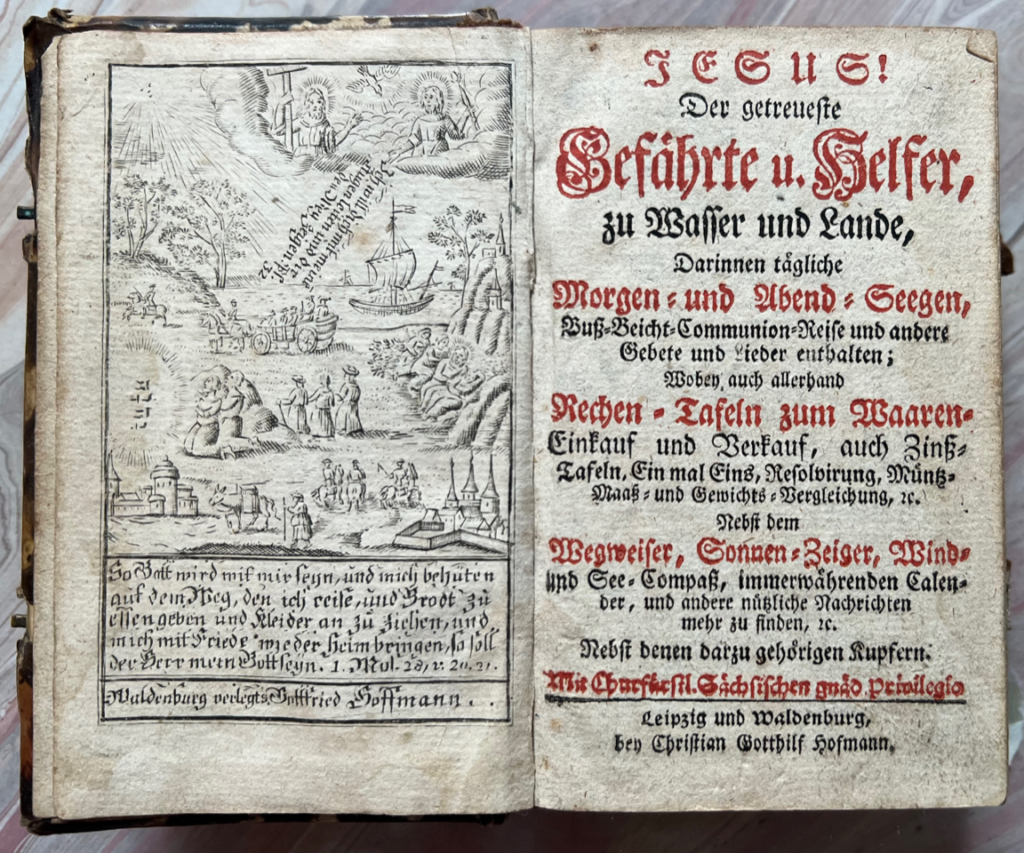 Ich will dich mit meine
Augen leiten und dir
den Weg zeigen Ps.
32.
So Gott wird mit mir seyn, und mich behüten
auf dem Weg, den ich reise, und Brodt zu
essen geben und Kleider an zu ziehen, und
mich mit Friede wieder heim bringen, so soll
der Herr mein Gott seyn. 1. Mos. 28, v. 20. 21.
Waldenburg verlegts Gottfried Hoffmann.
JESUS!
Der getreueste
Gefährte u. Helfer,
zu Wasser und Lande,
Darinnen tägliche
Morgen- und Abend-Seegen,
Buß-Beicht-Communion-Reise und andere
Gebete und Lieder enthalten;
Wobey auch allerhand
Rechen-Tafeln zum Waaren-
Einkauf und Verkauf, auch Zinß-
Tafeln, Ein mal Eins, Resolvirung, Müntz-
Maaß- und Gewichts-Vergleichung, ꝛc.
Nebst dem
Wegweiser, Sonnen-Zeiger, Wind-
und See-Compaß, immerwährenden Calen-
der, und andere nützliche Nachrichten
mehr zu finden, ꝛc.
Nebst denen darzu gehörigen Kupfern.
Mit Churfürstl. Sächsischen gnäd. Privilegio
Leipzig und Waldenburg,
bey Christian Gotthilf Hofmann.